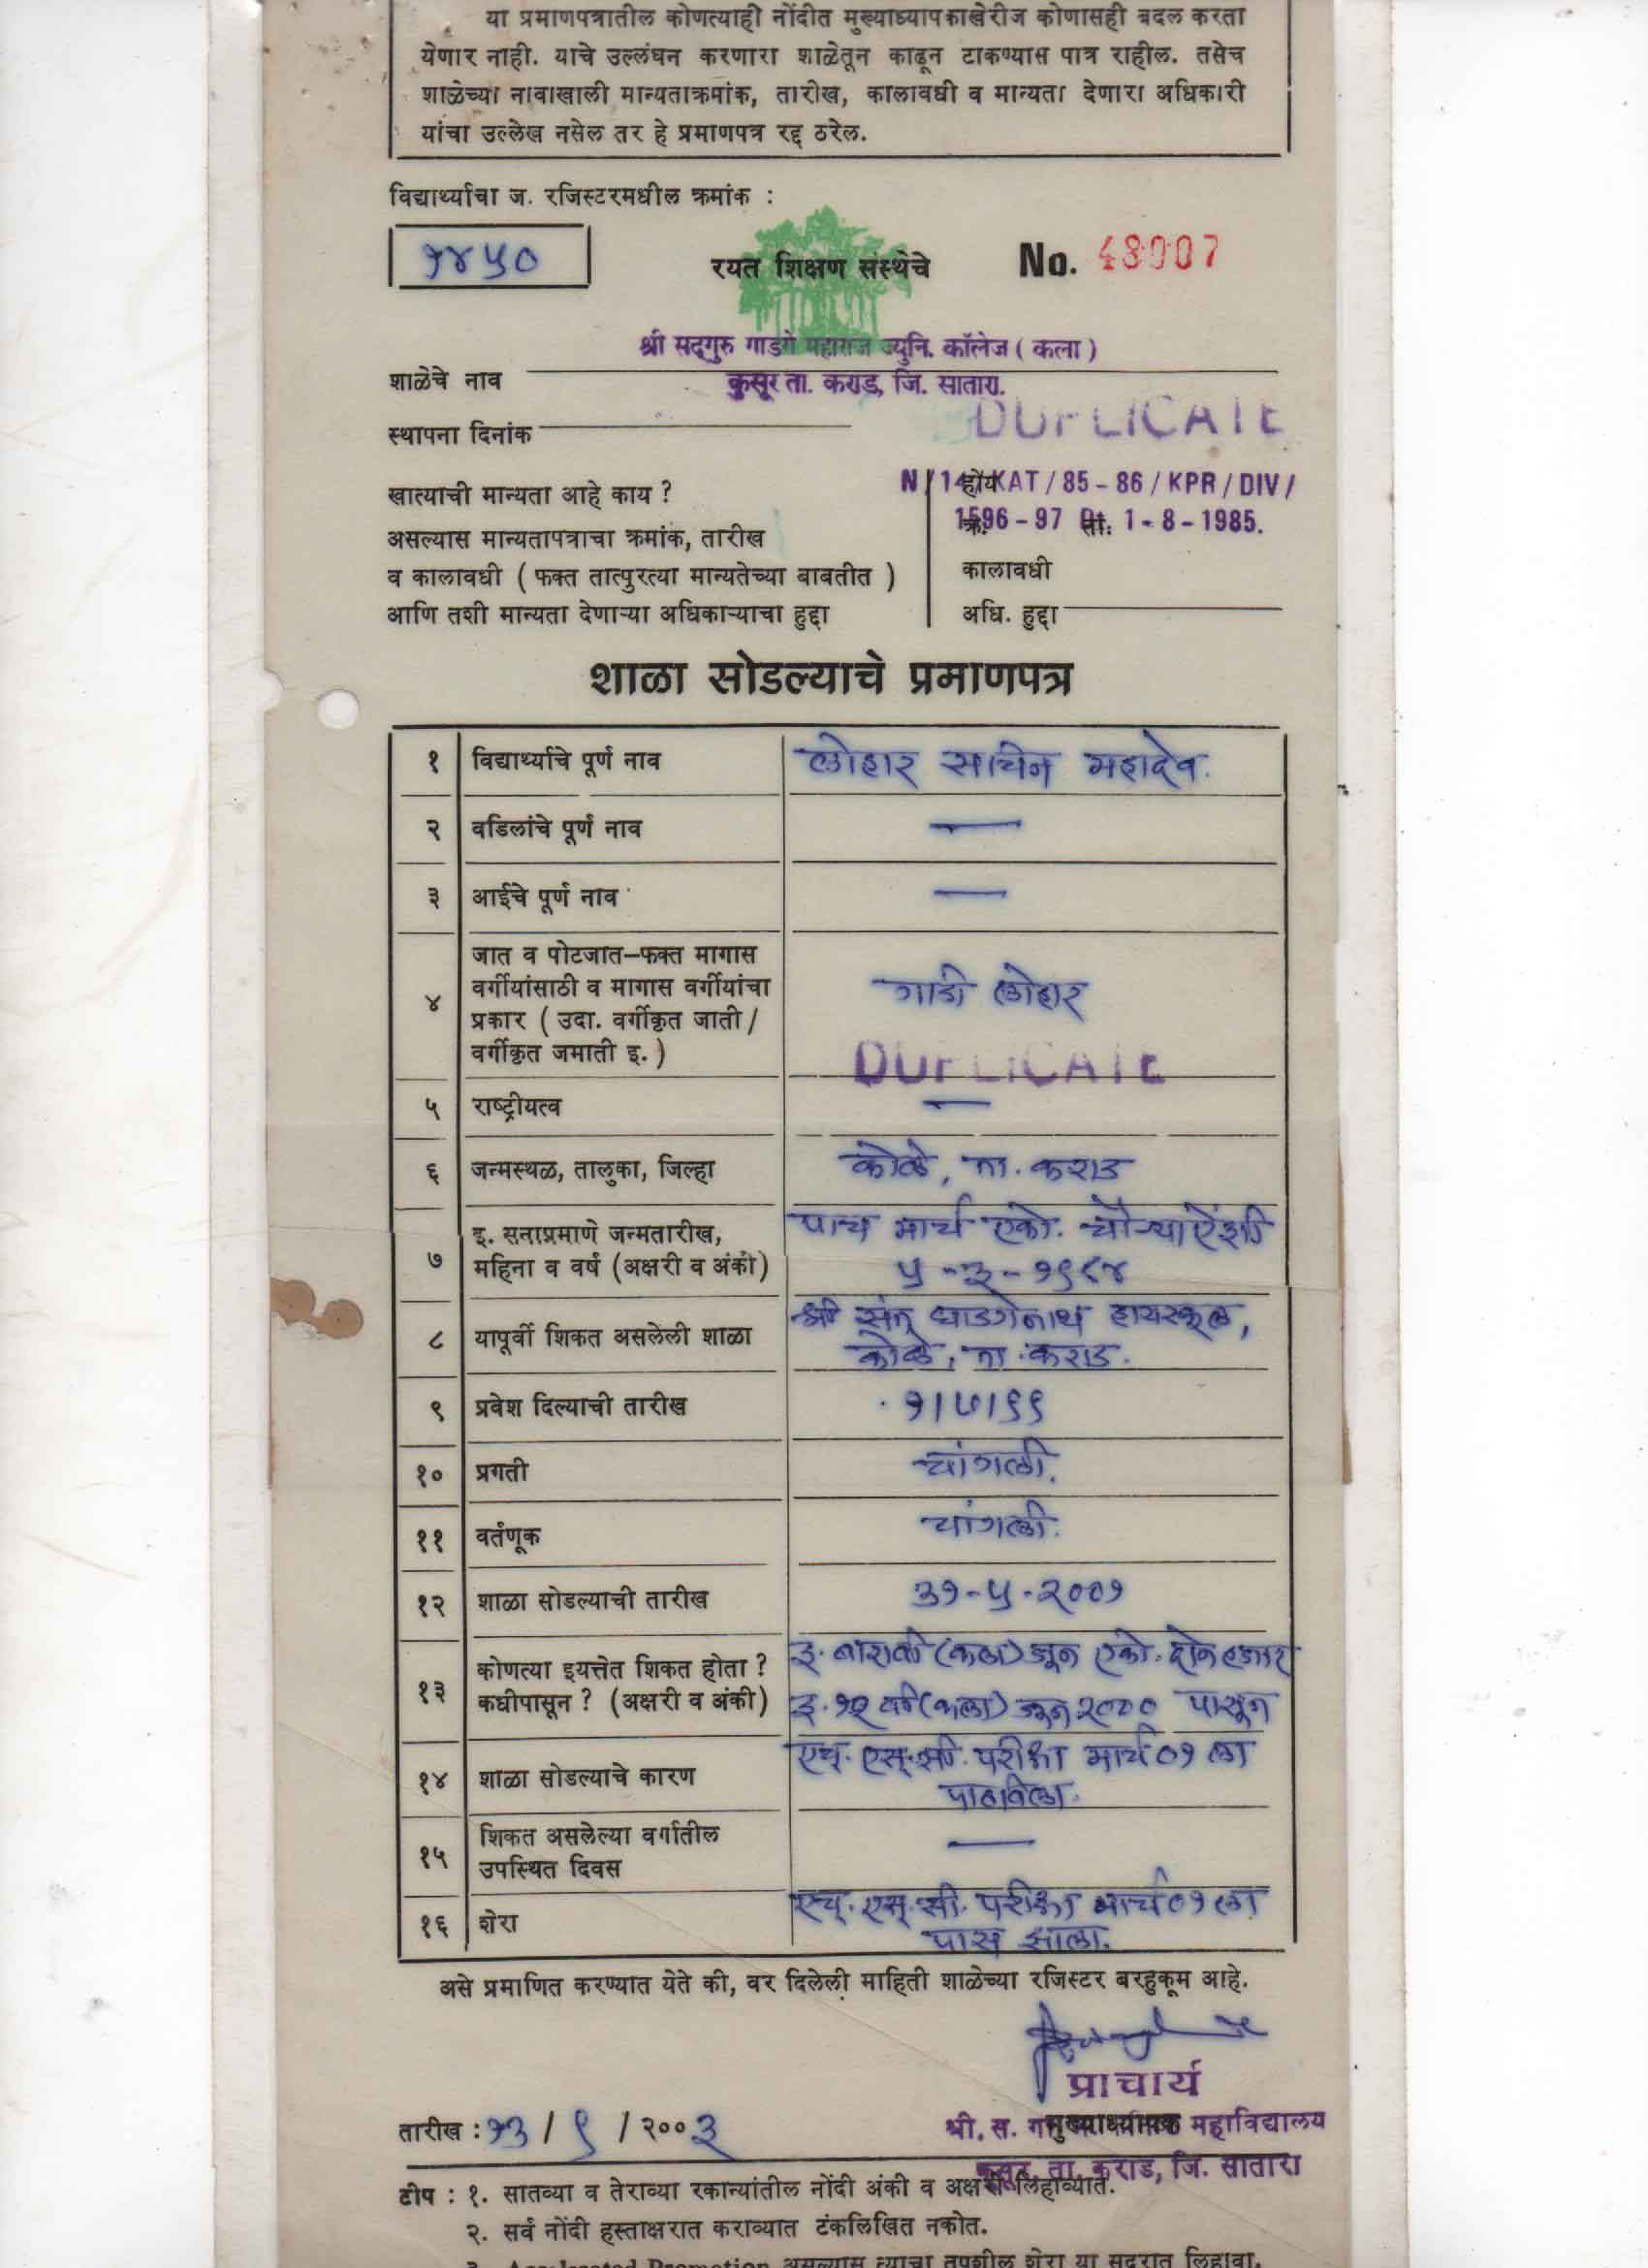 या प्रमाणपत्रातील कोणत्याही नोंदीत मुख्याध्यापकाखेरीज कोणासही बदल करता
येणार नाही. याचे उल्लंघन करणारा शाळेतून काढून टाकण्यास पात्र राहील. तसेच
शाळेच्या नावाखाली मान्यताक्रमांक, तारीख, कालावधी व मान्यता देणारा अधिकारी
यांचा उल्लेख नसेल तर हे प्रमाणपत्र रद्द ठरेल.
विद्यार्थ्याचा ज. रजिस्टरमधील क्रमांक :
१४५०
रयत शिक्षण संस्थेचे
No. 48007
श्री सद्‌गुरु गाडगे महाराज ज्युनि. कॉलेज ( कला )
शाळेचे नाव कुसूर ता. कराड, जि. सातारा.
DUPLICATE
स्थापना दिनांक
खात्याची मान्यता आहे काय ? होय N/14/KAT/85-86/KPR/DIV/
क्र. 1596-97 ता. Dt. 1-8-1985.
असल्यास मान्यतापत्राचा क्रमांक, तारीख
व कालावधी ( फक्त तात्पुरत्या मान्यतेच्या बाबतीत ) कालावधी
आणि तशी मान्यता देणाऱ्या अधिकाऱ्याचा हुद्दा अधि. हुद्दा
शाळा सोडल्याचे प्रमाणपत्र
१ विद्यार्थ्याचे पूर्ण नाव लोहार सचिन महादेव.
२ वडिलांचे पूर्ण नाव —
३ आईचे पूर्ण नाव —
जात व पोटजात—फक्त मागास
वर्गीयांसाठी व मागास वर्गीयांचा
४ प्रकार ( उदा. वर्गीकृत जाती / गाडी लोहार
वर्गीकृत जमाती इ. )
DUPLICATE
५ राष्ट्रीयत्व —
६ जन्मस्थळ, तालुका, जिल्हा कोळे, ता. कराड
इ. सनाप्रमाणे जन्मतारीख, पाच मार्च एको. चौऱ्याऐंशी
७ महिना व वर्ष (अक्षरी व अंकी) ५-३-१९८४
८ यापूर्वी शिकत असलेली शाळा श्री संत घाडगेनाथ हायस्कूल,
कोळे, ता. कराड.
९ प्रवेश दिल्याची तारीख १।७।९९
१० प्रगती चांगली.
११ वर्तणूक चांगली.
१२ शाळा सोडल्याची तारीख ३१-५-२००१
कोणत्या इयत्तेत शिकत होता ? इ. बारावी (कला) जून एको. दोन हजार
१३ कधीपासून ? (अक्षरी व अंकी) इ. १२ वी (कला) जून २००० पासून
१४ शाळा सोडल्याचे कारण एच्. एस्. सी. परीक्षा मार्च ०१ ला
पाठविला.
१५ शिकत असलेल्या वर्गातील —
उपस्थित दिवस
१६ शेरा एच्. एस्. सी. परीक्षा मार्च ०१ ला
पास झाला.
असे प्रमाणित करण्यात येते की, वर दिलेली माहिती शाळेच्या रजिस्टर बरहुकूम आहे.
प्राचार्य
तारीख : १३ / ९ / २००३ मुख्याध्यापक
श्री. स. महाविद्यालय
कुसूर, ता. कराड, जि. सातारा
टीप : १. सातव्या व तेराव्या रकान्यांतील नोंदी अंकी व अक्षरी लिहाव्यात.
२. सर्व नोंदी हस्ताक्षरात कराव्यात टंकलिखित नकोत.
३. Accelerated Promotion असल्यास त्याचा तपशील शेरा या सदरात लिहावा.